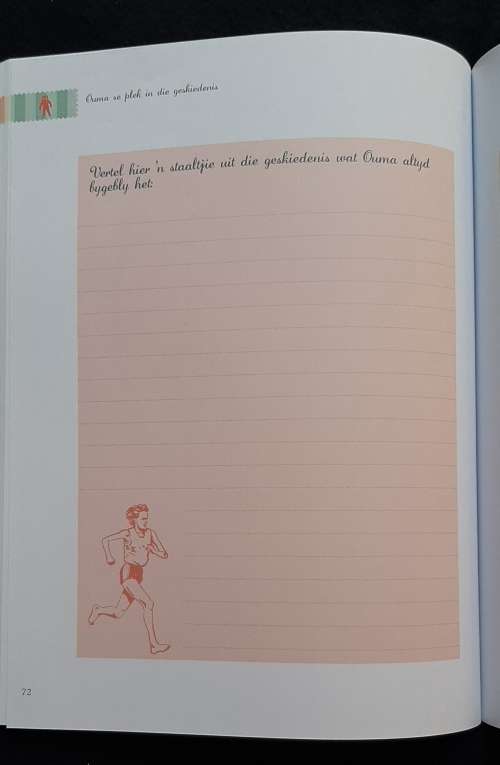 Ouma se plek in die geskiedenis
Vertel hier 'n staaltjie uit die geskiedenis wat Ouma altyd
bygebly het:
72